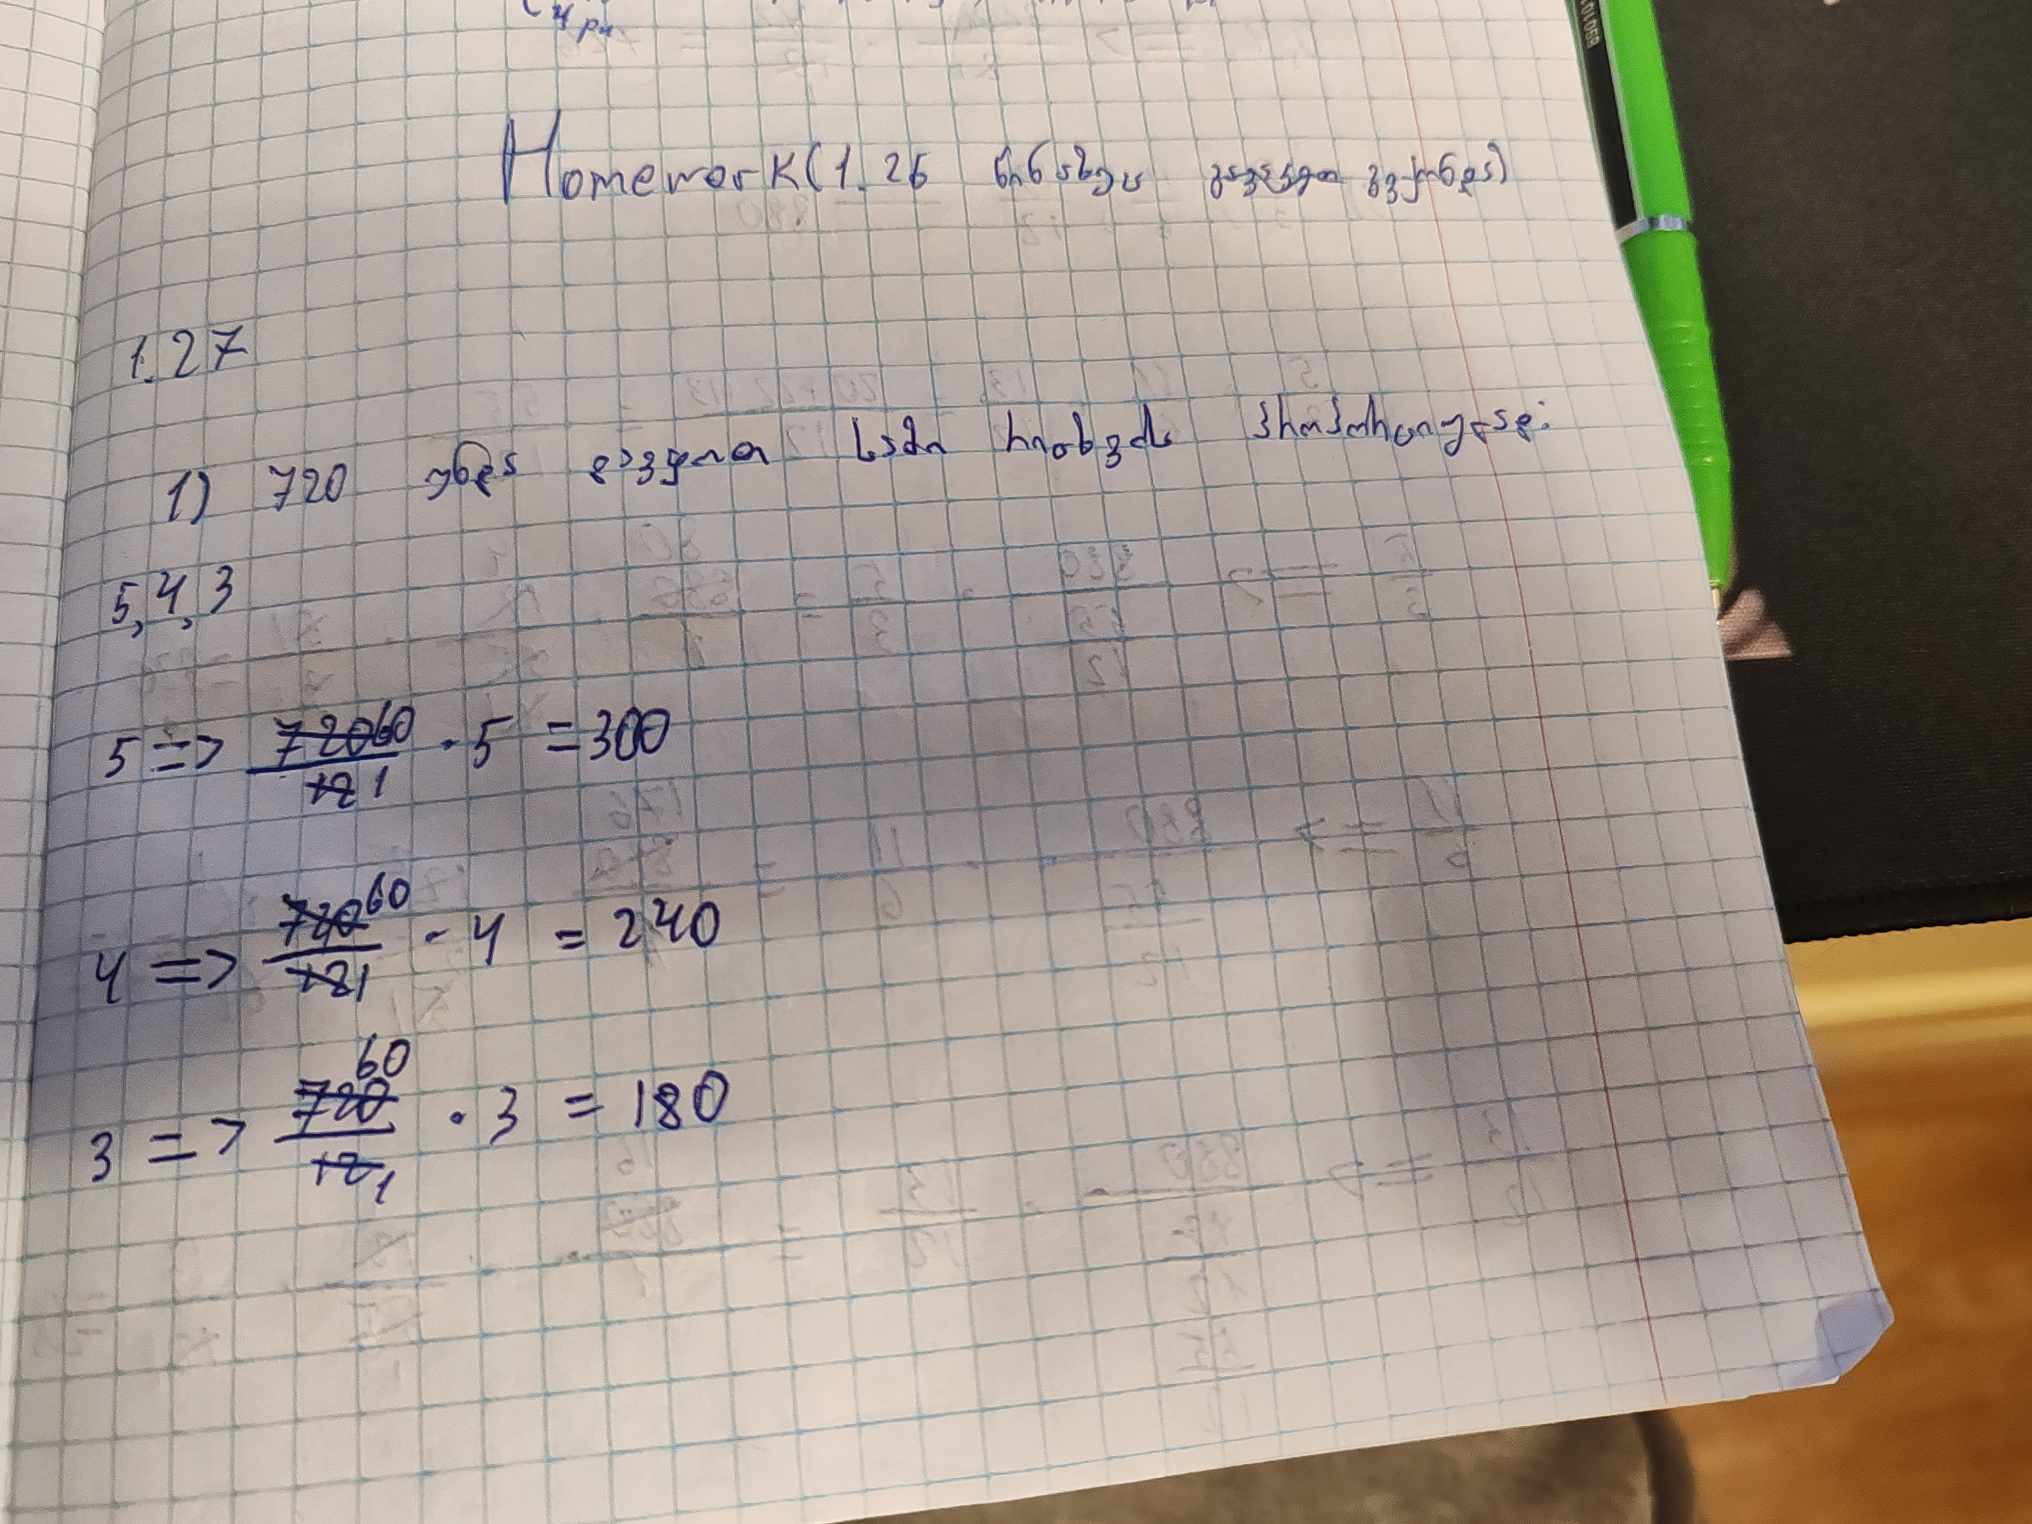 Homework(1.26 წინაზეა გაკეთებული გვერდზე)
1.27
1) 720 უნდა დავყოთ სამ რიცხვს პროპორციულად:
5,4,3
5 => 720 60 / 12 1 · 5 = 300
4 => 720 60 / 12 1 · 4 = 240
3 => 720 60 / 12 1 · 3 = 180